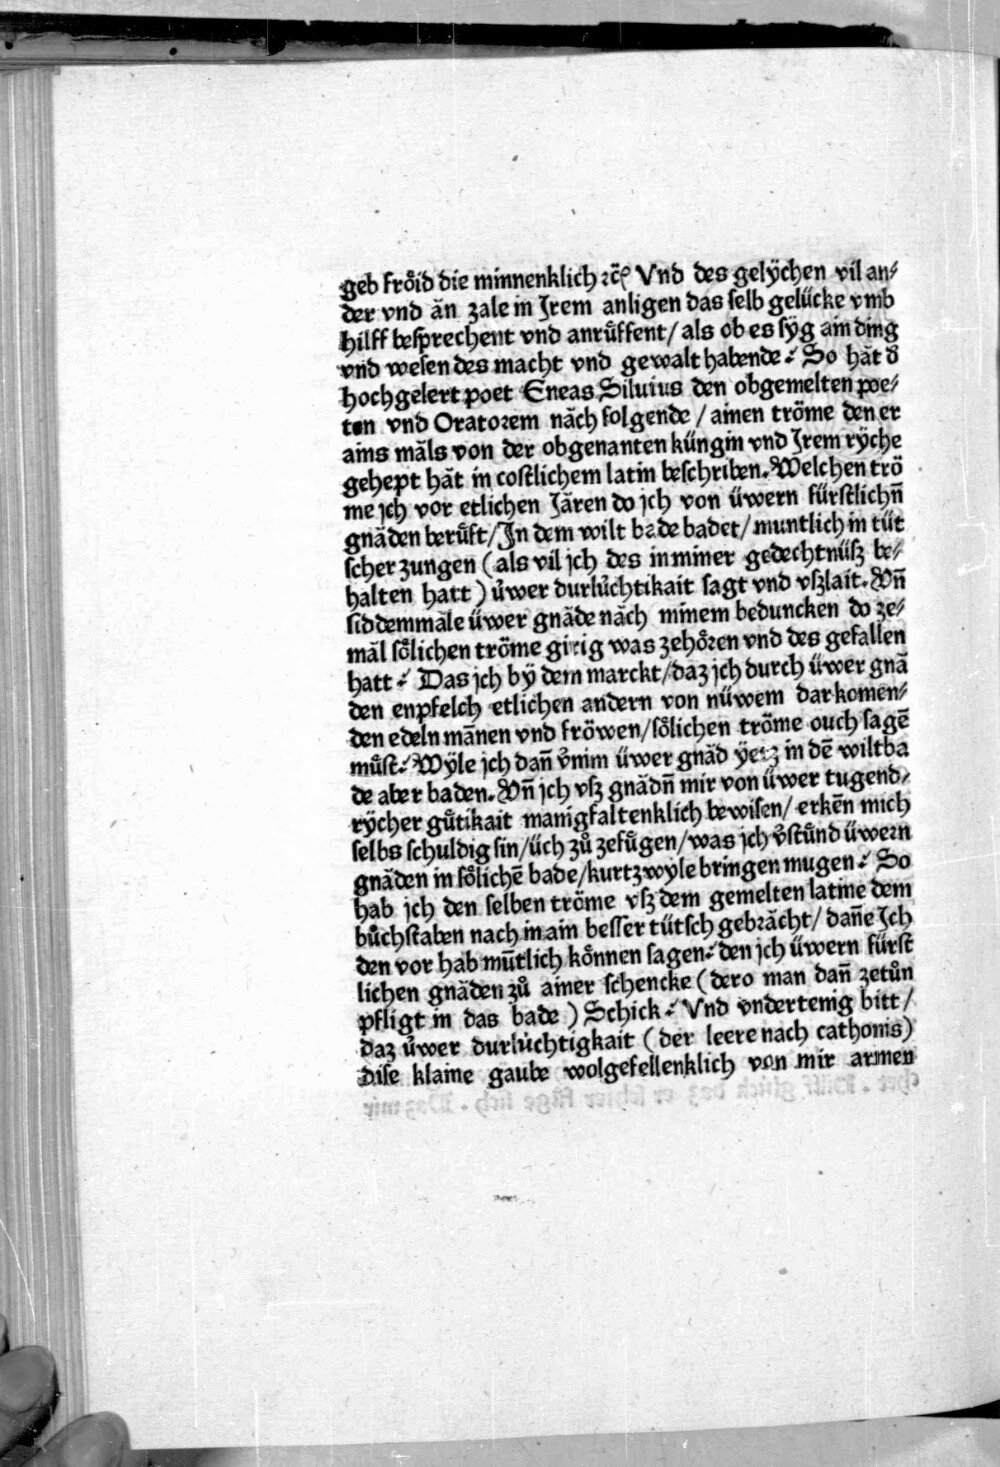 geb froͤid die minnenklich ꝛc̄ꝭ Vnd des gelÿchen vil an⸗
der vnd ān zale in Jrem anligen das selb gelücke vmb
hilff besprechent vnd anruͤffent/ als ob es sÿg ain ding
vnd wesen des macht vnd gewalt habende. So hāt d̄
hochgelert poet Eneas Siluius den obgemelten poe⸗
ten vnd Oratorem nāch folgende / ainen tröme den er
ains māls von der obgenanten küngin vnd Jrem rÿche
gehept hāt in costlichem latin beschriben. Welchen trö
me jch vor etlichen Jāren do jch von üwern fürstlichn̄
gnāden beruͤft/ Jn dem wilt bade badet/ muntlich in tüt
scher zungen (als vil jch des in miner gedechtnüsz be⸗
halten hatt) uͤwer durluͤchtikait sagt vnd vszlait. Vn̄
sid demmāle üwer gnāde nāch minem beduncken do ze⸗
māl soͤlichen tröme girig was zehoͤren vnd des gefallen
hatt. Das jch bÿ dem marckt/ daz jch durch üwer gnā
den enpfelch etlichen andern von nüwem dar komen⸗
den edeln mānen vnd fröwen/ soͤlichen tröme ouch sagē
muͦst. Wÿle jch dan̄ v̊nim üwer gnād ÿetz in dē wiltba
de aber baden. Vn̄ jch vsz gnādn̄ mir von üwer tugend⸗
rÿcher guͤtikait manigfaltenklich bewisen/ erkēn mich
selbs schuldig sin/ üch zuͦ zefuͤgen/ was jch v̊stuͦnd üwern
gnāden in soͤlichē bade/ kurtzwyle bringen mugen. So
hab jch den selben tröme vsz dem gemelten latine dem
buͦchstaben nach in ain besser tütsch gebrācht/ dan̄e Jch
den vor hab mūtlich koͤnnen sagen. den jch üwern fürst
lichen gnāden zuͦ ainer schencke (dero man dan̄ zetuͦn
pfligt in das bade) Schick. Vnd vndertenig bitt/
daz uͤwer durluͤchtigkait (der leere nach cathonis)
dise klaine gaube wolgefellenklich von mir armen